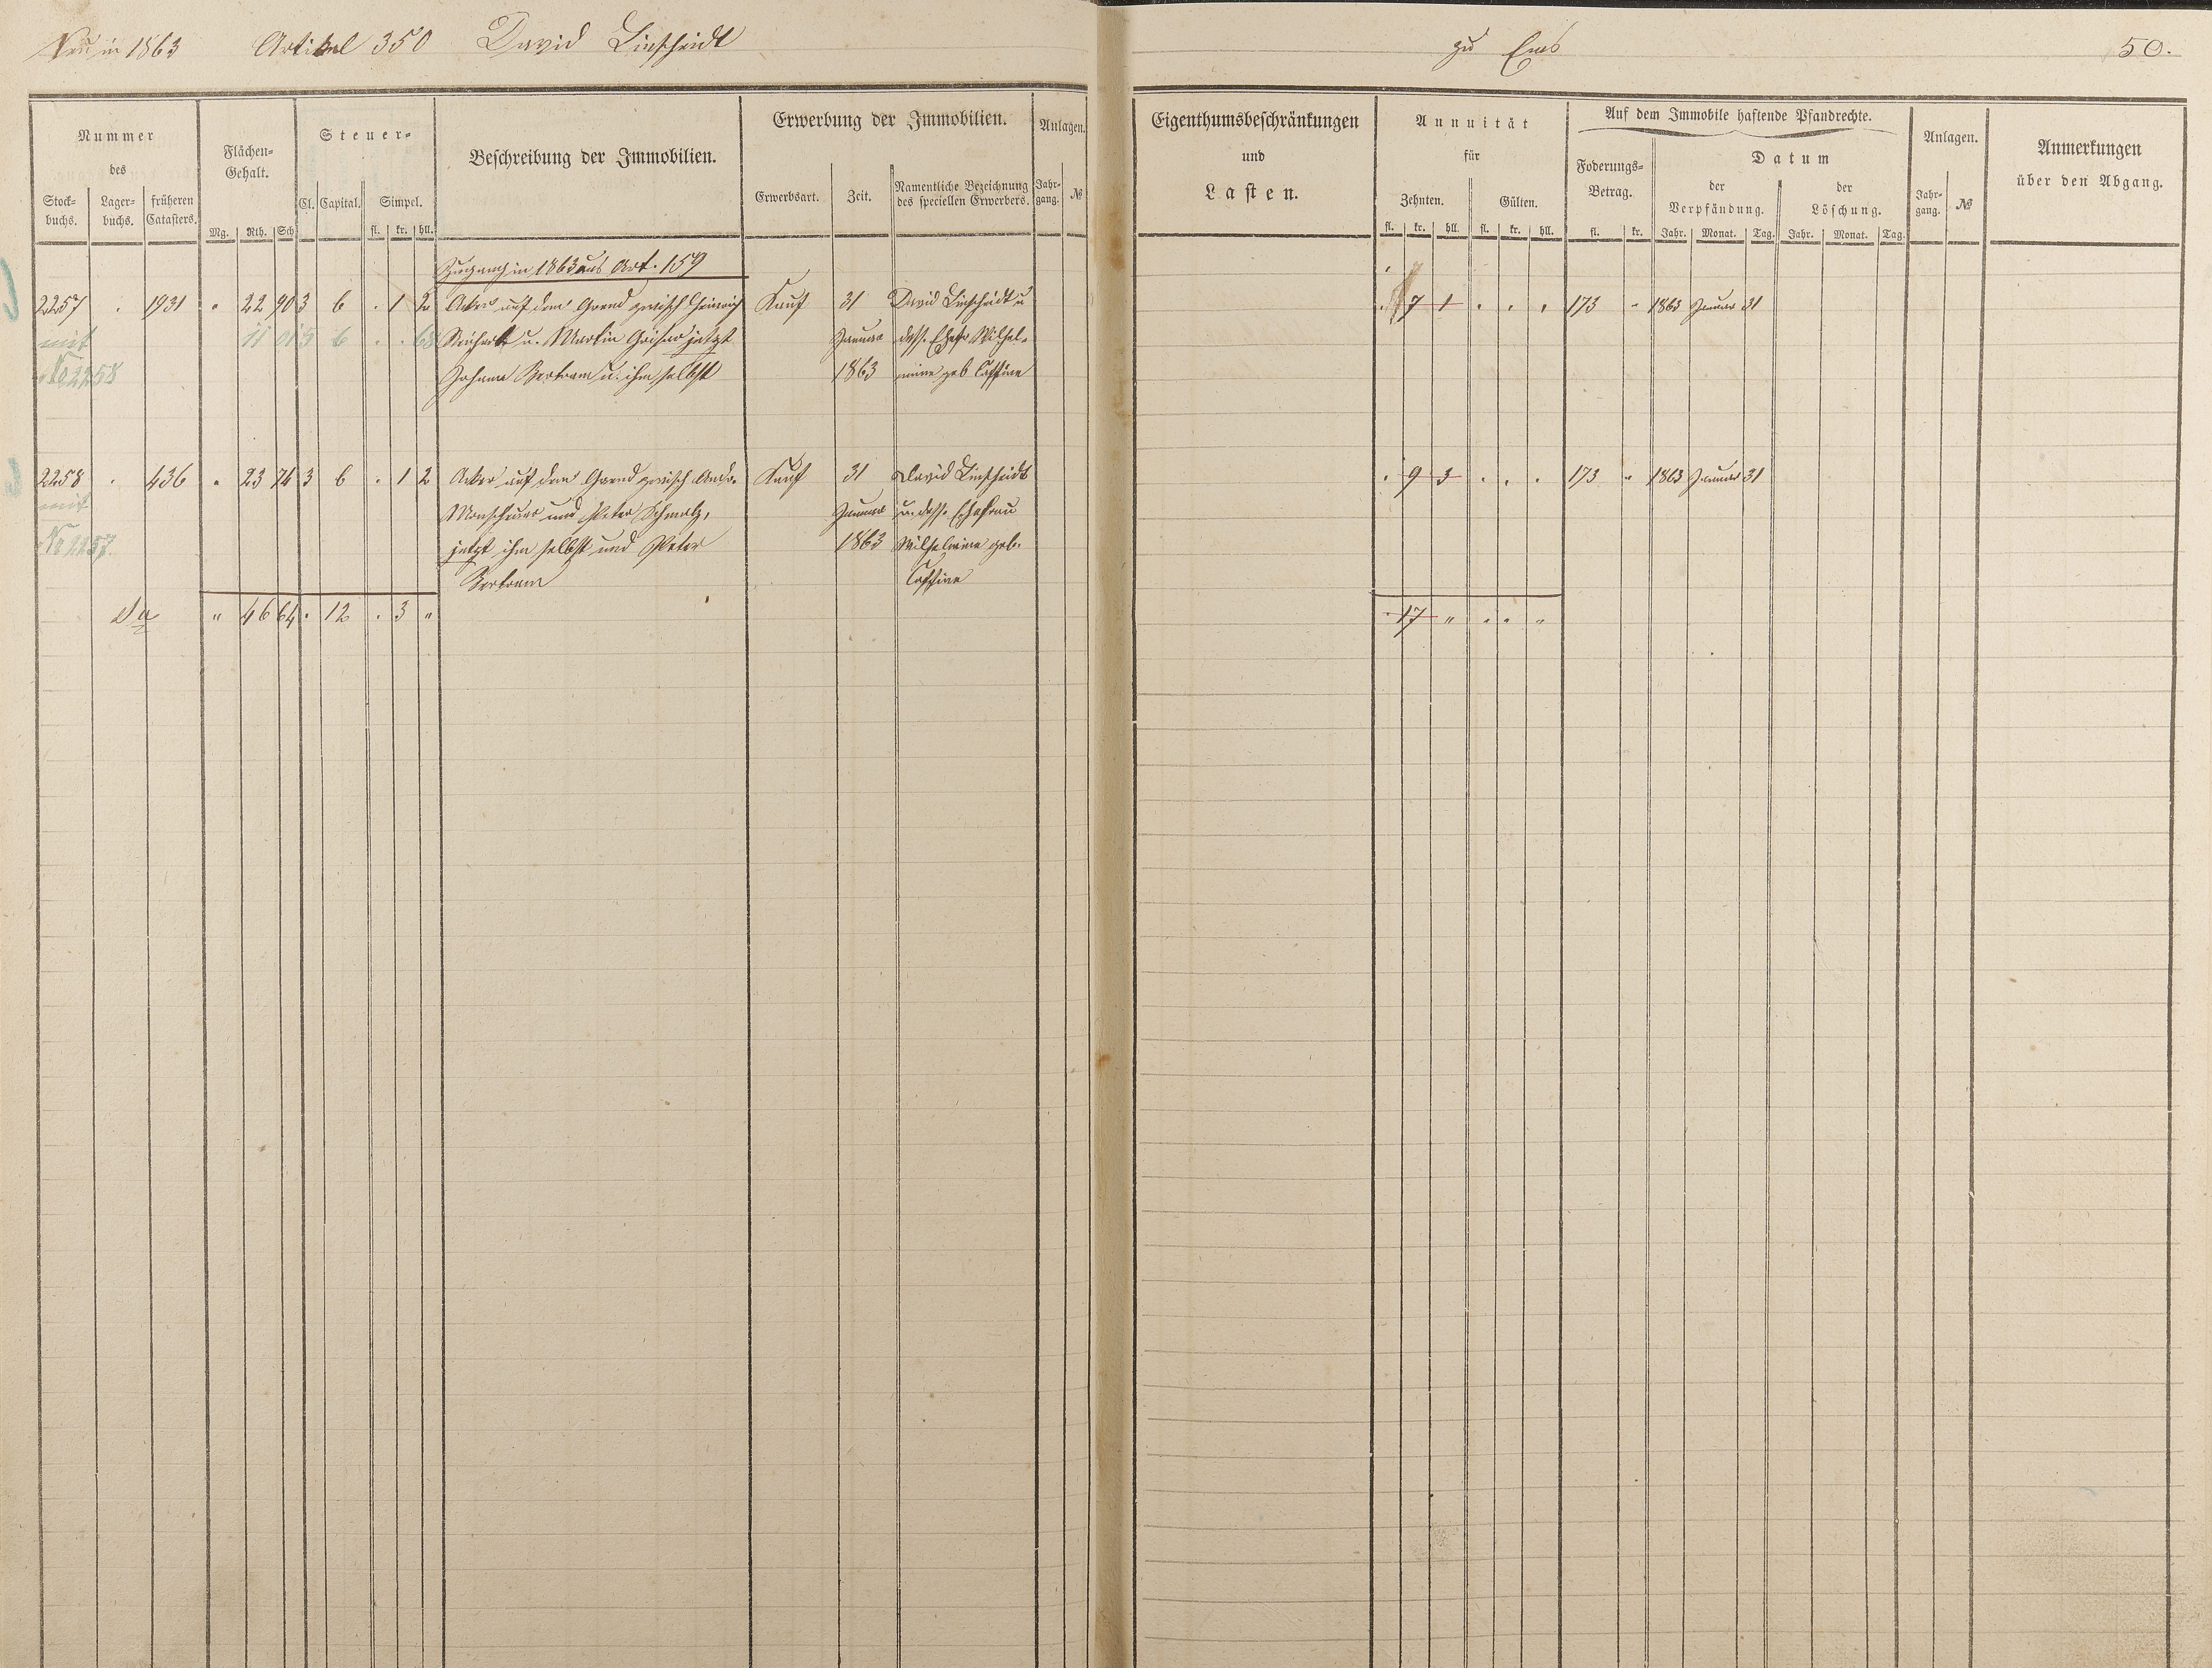 Neu in 1863 Artikel 350 David Linscheidt zu Ems 50.
Nummer
des
Stock-
buchs.
Lager-
buchs.
früheren
Catasters.
Flächen-
Gehalt.
Mg. Rth. Sch
Steuer-
Cl. Capital. Simpel.
fl. kr. hll.
Beschreibung der Immobilien.
Erwerbung der Immobilien.
Erwerbsart. Zeit.
Namentliche Bezeichnung
des speciellen Erwerbers.
Anlagen.
Jahr-
gang.
№
Eigenthumsbeschränkungen
und
Lasten.
Annuität
für
Zehnten. Gülten.
fl. kr. hll. fl. kr. hll.
Auf dem Immobile haftende Pfandrechte.
Foderungs-
Betrag.
fl. kr.
Datum
der
Verpfändung.
der
Löschung.
Jahr. Monat. Tag. Jahr. Monat. Tag.
Anlagen.
Jahr-
gang.
№
Anmerkungen
über den Abgang.
Zugang in 1863 aus Art. 159
2257 . 1931 " 22 90 3 6 . 1 2 Acker auf dem Grend zwisch Heinrich Kauf 31 David Linscheidt u . 7 1 . . . 173 " 1863 Januar 31
mit 11 01 5 6 . . 68 u. Martin jetzt Januar dess. Ehefr Wilhel-
No 2258 Johann Bertram u. ihm selbst 1863 mine geb
2258 . 436 " 23 74 3 6 . 1 2 Acker auf dem Grend zwisch Andr. Kauf 31 David Linscheidt . 9 3 . . . 173 " 1863 Januar 31
mit und Peter Schmalz, Januar u. dess. Ehefrau
No 2257. jetzt ihm selbst und Peter 1863 Wilhelmine geb.
Bertram
Sa " 46 64 . 12 . 3 " . 17 " . . "